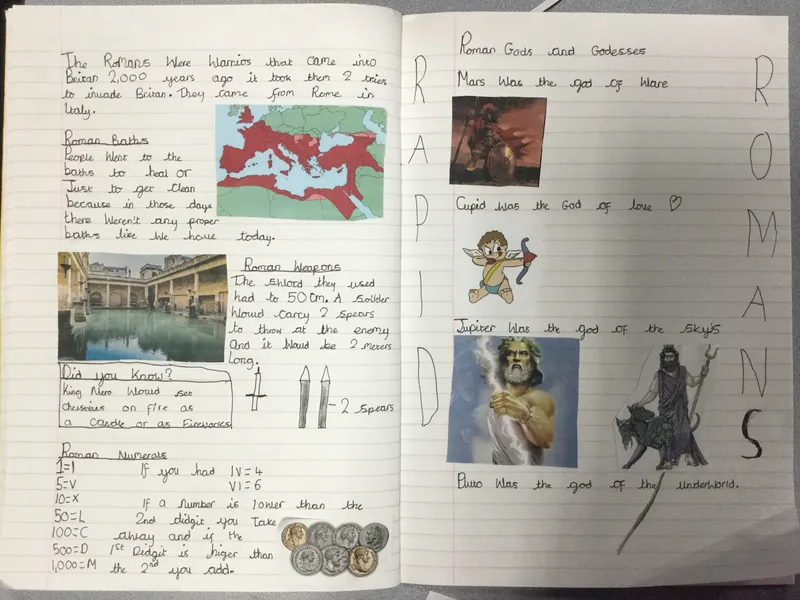 The Romans Were Warrios that came into
Britan 2,000 years ago it took them 2 tries
to invade Britan. They came from Rome in
Italy.
Roman Baths
People Went to the
baths to heal or
Just to get clean
because in those days
there Weren't any proper
baths like We have today.
Roman Weapons
The sword they used
had to 50 cm. A
Would carry 2 spears
to throw at the enemy
and it Would be 2 meters
long.
Did you Know?
King Nero Would set
on fire as
a Candle or as Fireworks
2 spears
Roman Numerals
1=I
5=V
10=X
50=L
100=C
500=D
1,000=M
If you had IV=4
VI=6
If a number is lower than the
2nd didgit you Take
away and if the
1st Didgit is higer than
the 2nd you add.
RAPID
Roman Gods and Godesses
Mars Was the god of Ware
Cupid Was the God of love ♡
Jupiter Was the god of the sky's
Pluto Was the god of the underworld.
ROMANS